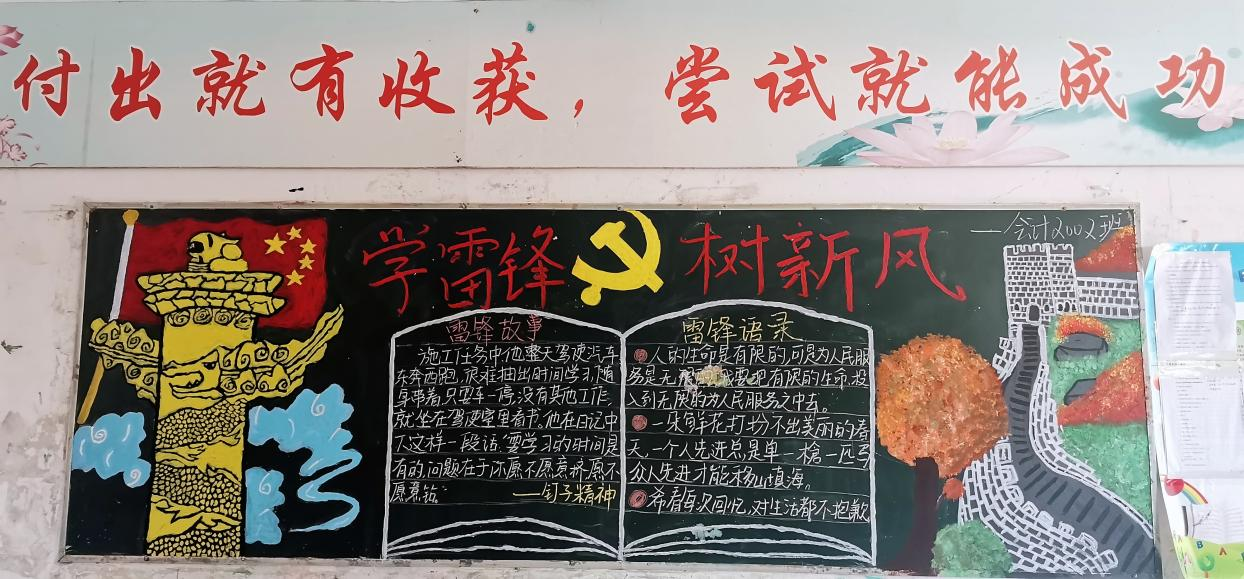 付出就有收获，尝试就能成功
学雷锋 树新风
—会计2002班
雷锋故事
施工任务中他整天驾驶汽车
东奔西跑,很难抽出时间学习,随
身带着,只要车一停,没有其他工作,
就坐在驾驶室里看书,他在日记中
下这样一段话:要学习的时间是
有的,问题在于你愿不愿意挤,愿不
愿意钻。
——钉子精神
雷锋语录
人的生命是有限的,可是为人民服
务是无限的,我要把有限的生命,投
入到无限的为人民服务之中去。
一朵鲜花打扮不出美丽的春
天,一个人先进总是单一枪一匹马
众人先进才能移山填海。
希看每次回忆,对生活都不抱歉